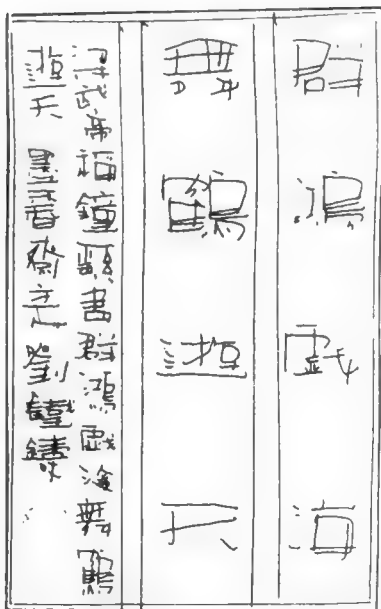 群鴻戲海
舞鶴遊天
梁武帝鍾繇書群鴻戲海舞鶴
遊天 墨香齋主劉